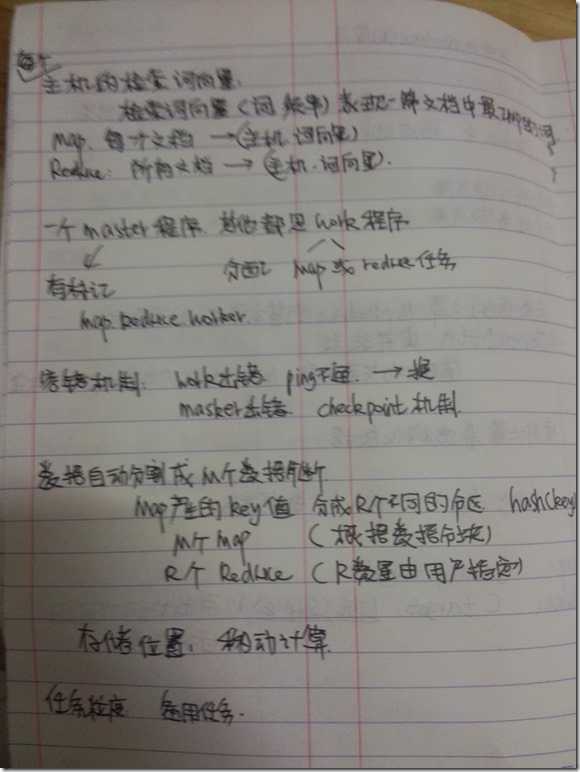 主机的检索词向量.
检索词向量(词 频率) 表述一篇文档中最重要的词
Map. 每个文档 → (主机.词向量)
Reduce: 所有文档 → (主机.词向量).
一个master程序. 其他都是work程序
有标记 分配 map 或 reduce 任务
map. Reduce. worker.
容错机制: work出错 ping不通. → 换
masker出错. checkpoint 机制.
数据自动分割成M个数据片断
Map产的key值 分成R个不同的分区 hash(key)
M个 map (根据数据分块)
R个 Reduce (R数量由用户指定)
存储位置. 移动计算.
任务粒度 备用任务.